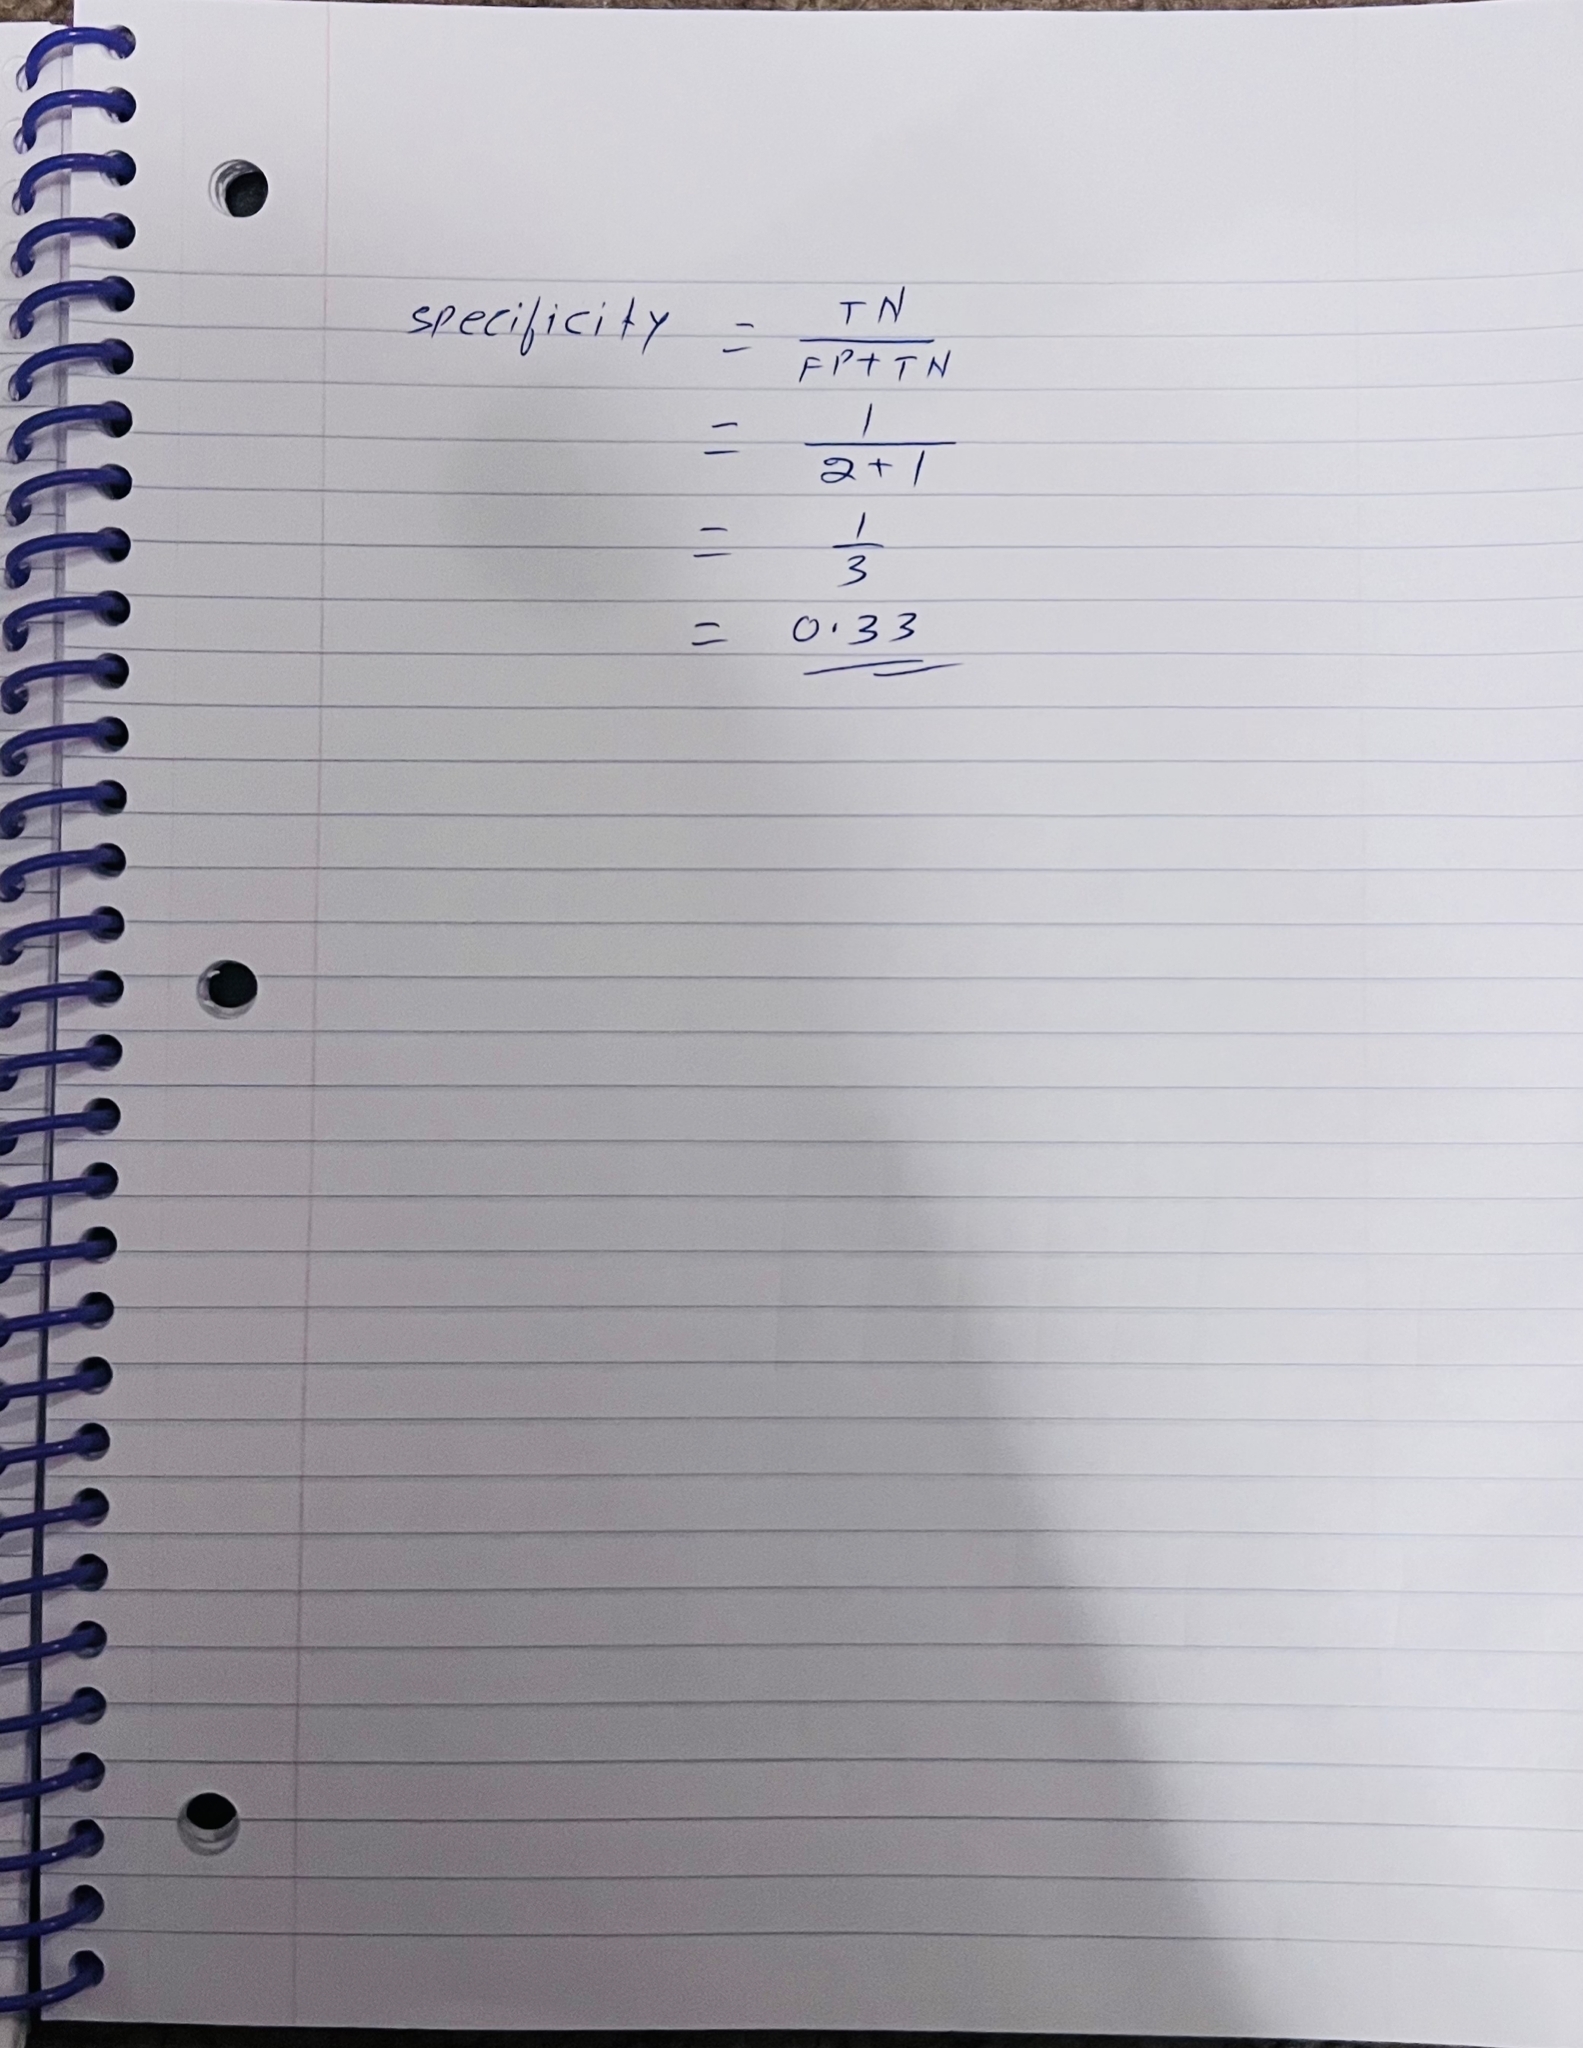 specificity = TN / FP+TN
= 1 / 2+1
= 1 / 3
= 0.33